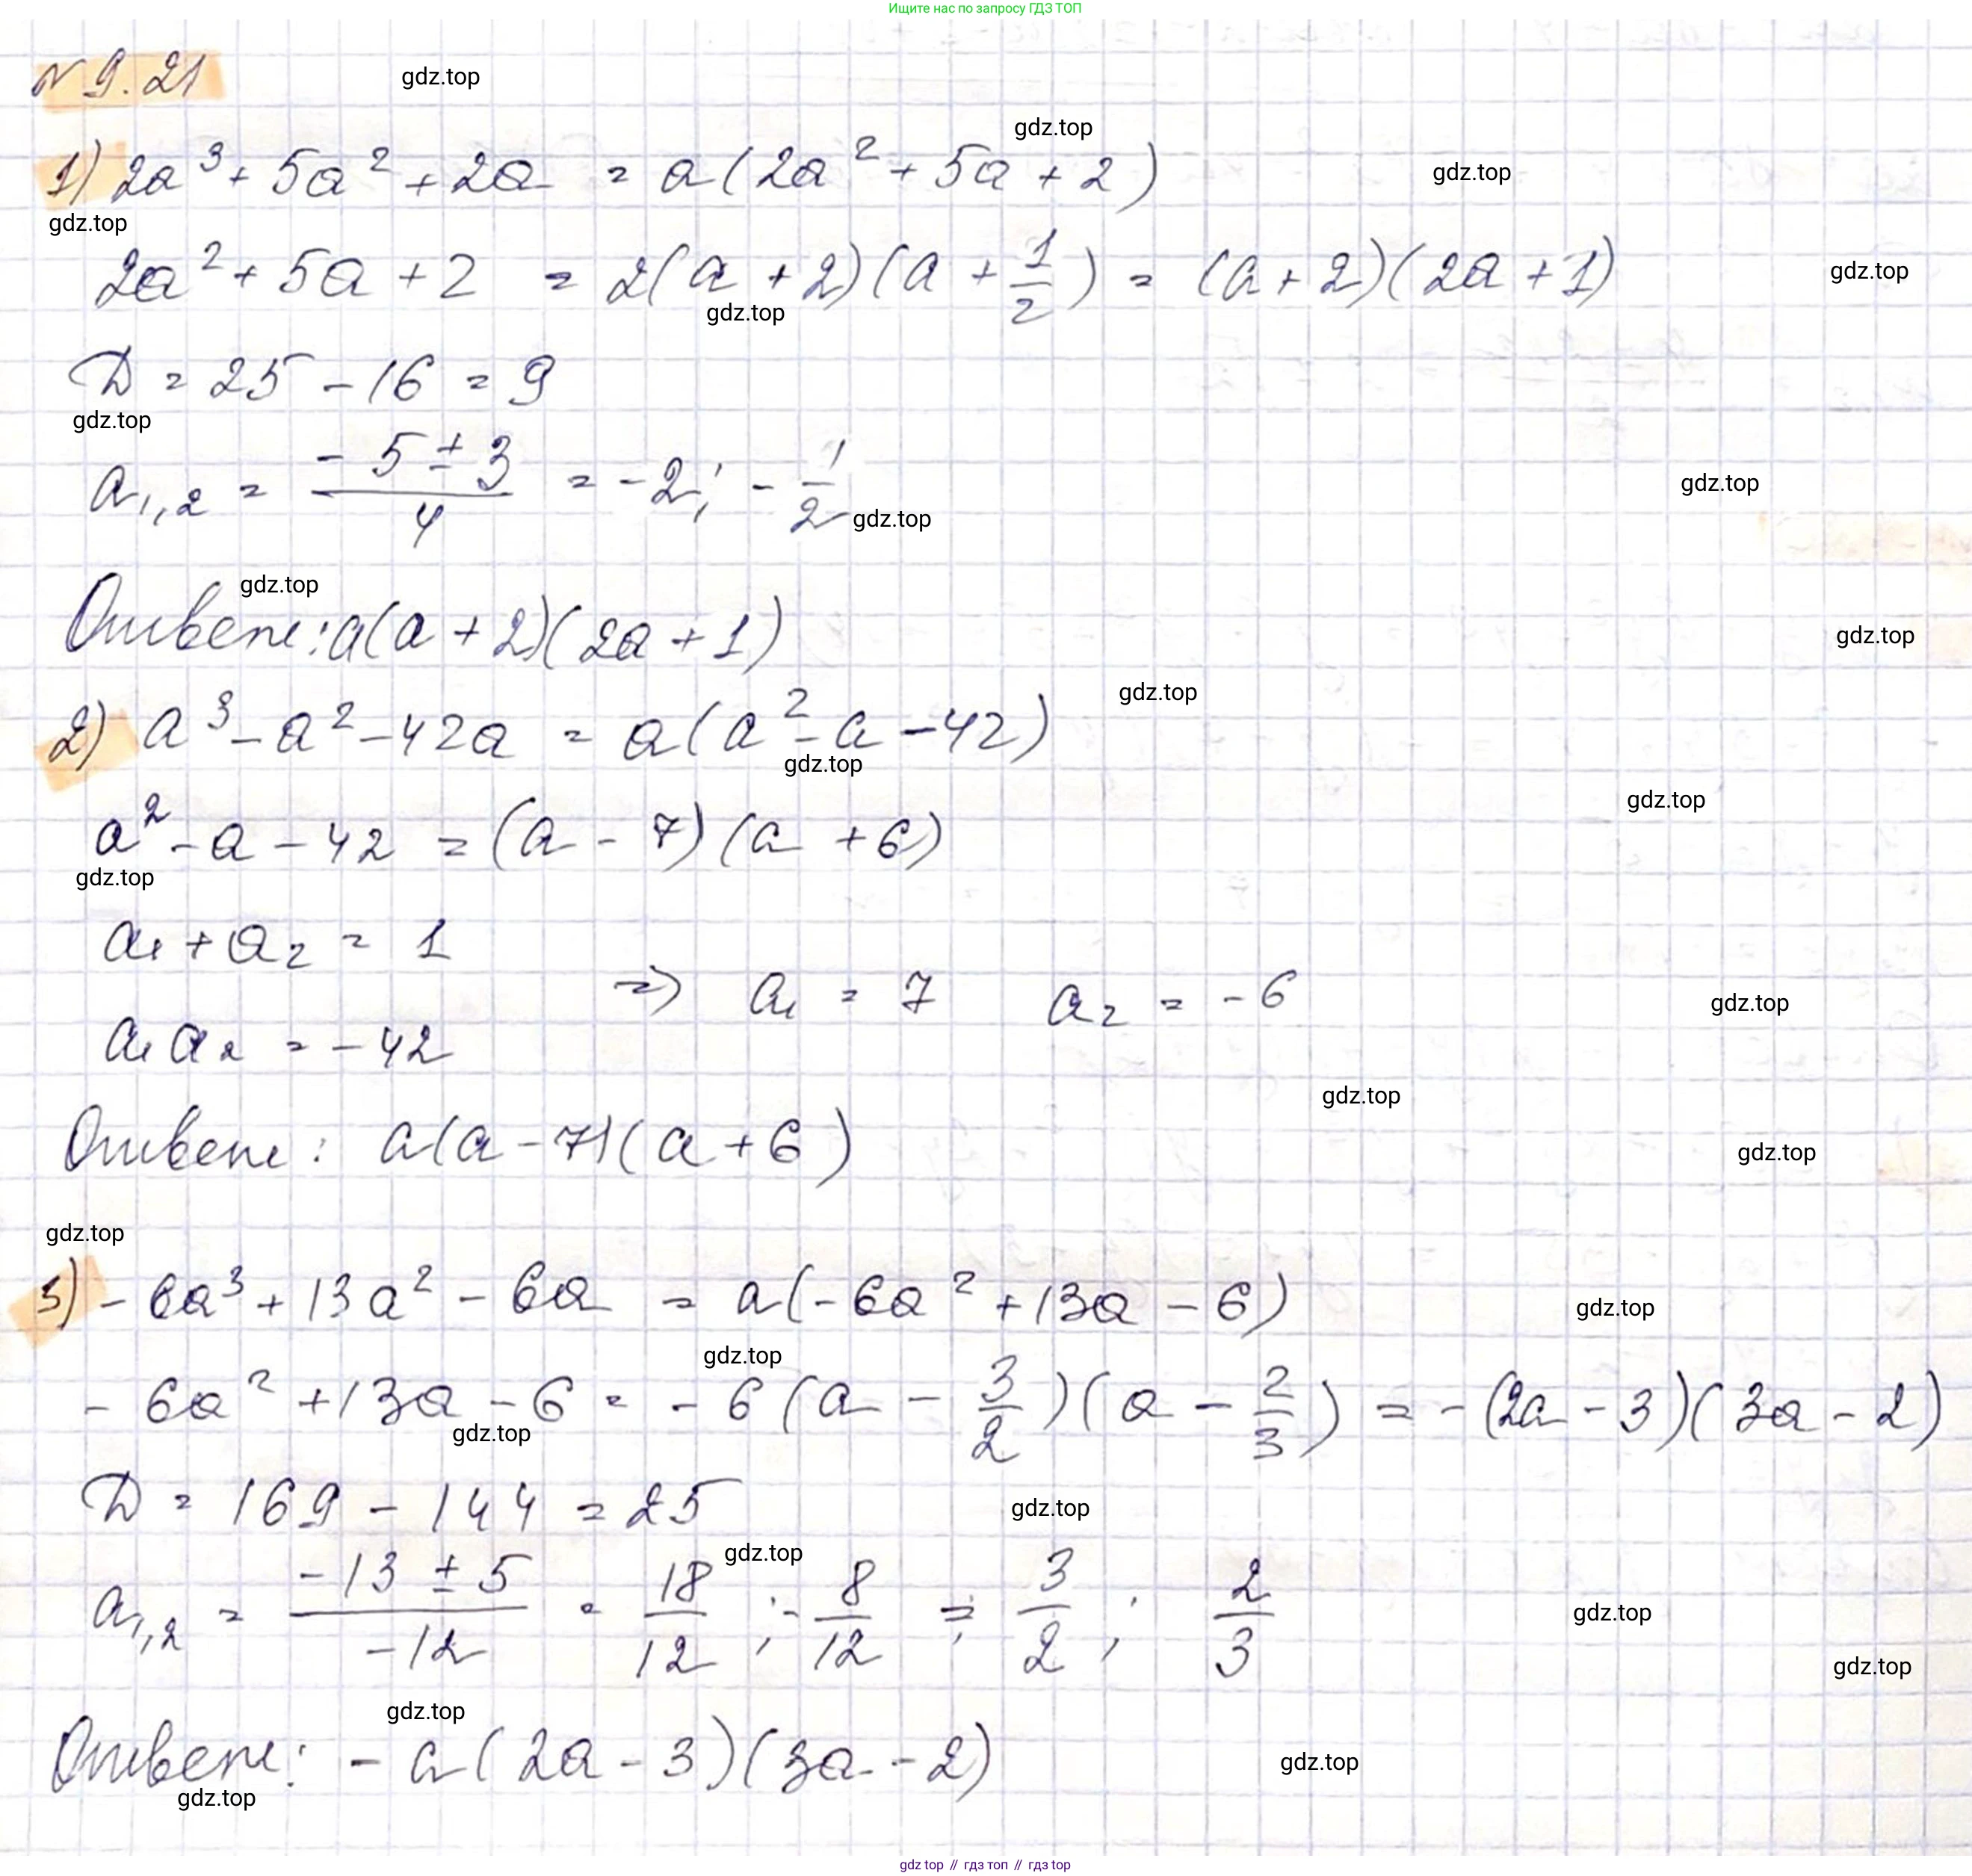 Ищите нас по запросу ГДЗ ТОП
N 9.21
gdz.top
gdz.top
1) 2a³ + 5a² + 2a = a(2a² + 5a + 2)
gdz.top
gdz.top
2a² + 5a + 2 = 2(a + 2)(a + 1/2) = (a + 2)(2a + 1)
gdz.top
gdz.top
D = 25 - 16 = 9
gdz.top
a₁,₂ = (-5 ± 3)/4 = -2; -1/2
gdz.top
gdz.top
gdz.top
Ответ: a(a + 2)(2a + 1)
gdz.top
gdz.top
2) a³ - a² - 42a = a(a² - a - 42)
gdz.top
gdz.top
a² - a - 42 = (a - 7)(a + 6)
gdz.top
a₁ + a₂ = 1
⇒ a₁ = 7 a₂ = -6
gdz.top
a₁a₂ = -42
gdz.top
Ответ: a(a - 7)(a + 6)
gdz.top
gdz.top
3) -6a³ + 13a² - 6a = a(-6a² + 13a - 6)
gdz.top
gdz.top
-6a² + 13a - 6 = -6(a - 3/2)(a - 2/3) = -(2a - 3)(3a - 2)
gdz.top
D = 169 - 144 = 25
gdz.top
gdz.top
a₁,₂ = (-13 ± 5)/-12 = 18/12; -8/12 = 3/2; 2/3
gdz.top
gdz.top
gdz.top
Ответ: -a(2a - 3)(3a - 2)
gdz.top
gdz.top
gdz top // гдз топ // гдз top